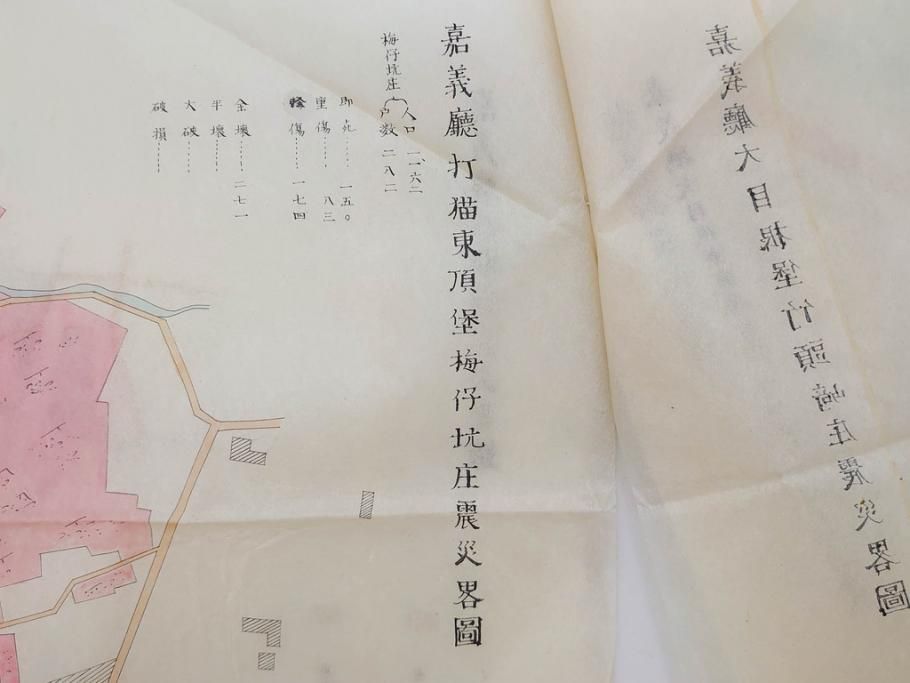 嘉義廳大目根堡竹頭崎庄震災畧圖
嘉義廳打猫東頂堡梅仔坑庄震災畧圖
梅仔坑庄
人口 一、一六二
戶数 二八二
即死……一五〇
重傷……八三
輕傷……一七四
全壞……二七一
半壞……
大破……
破損……